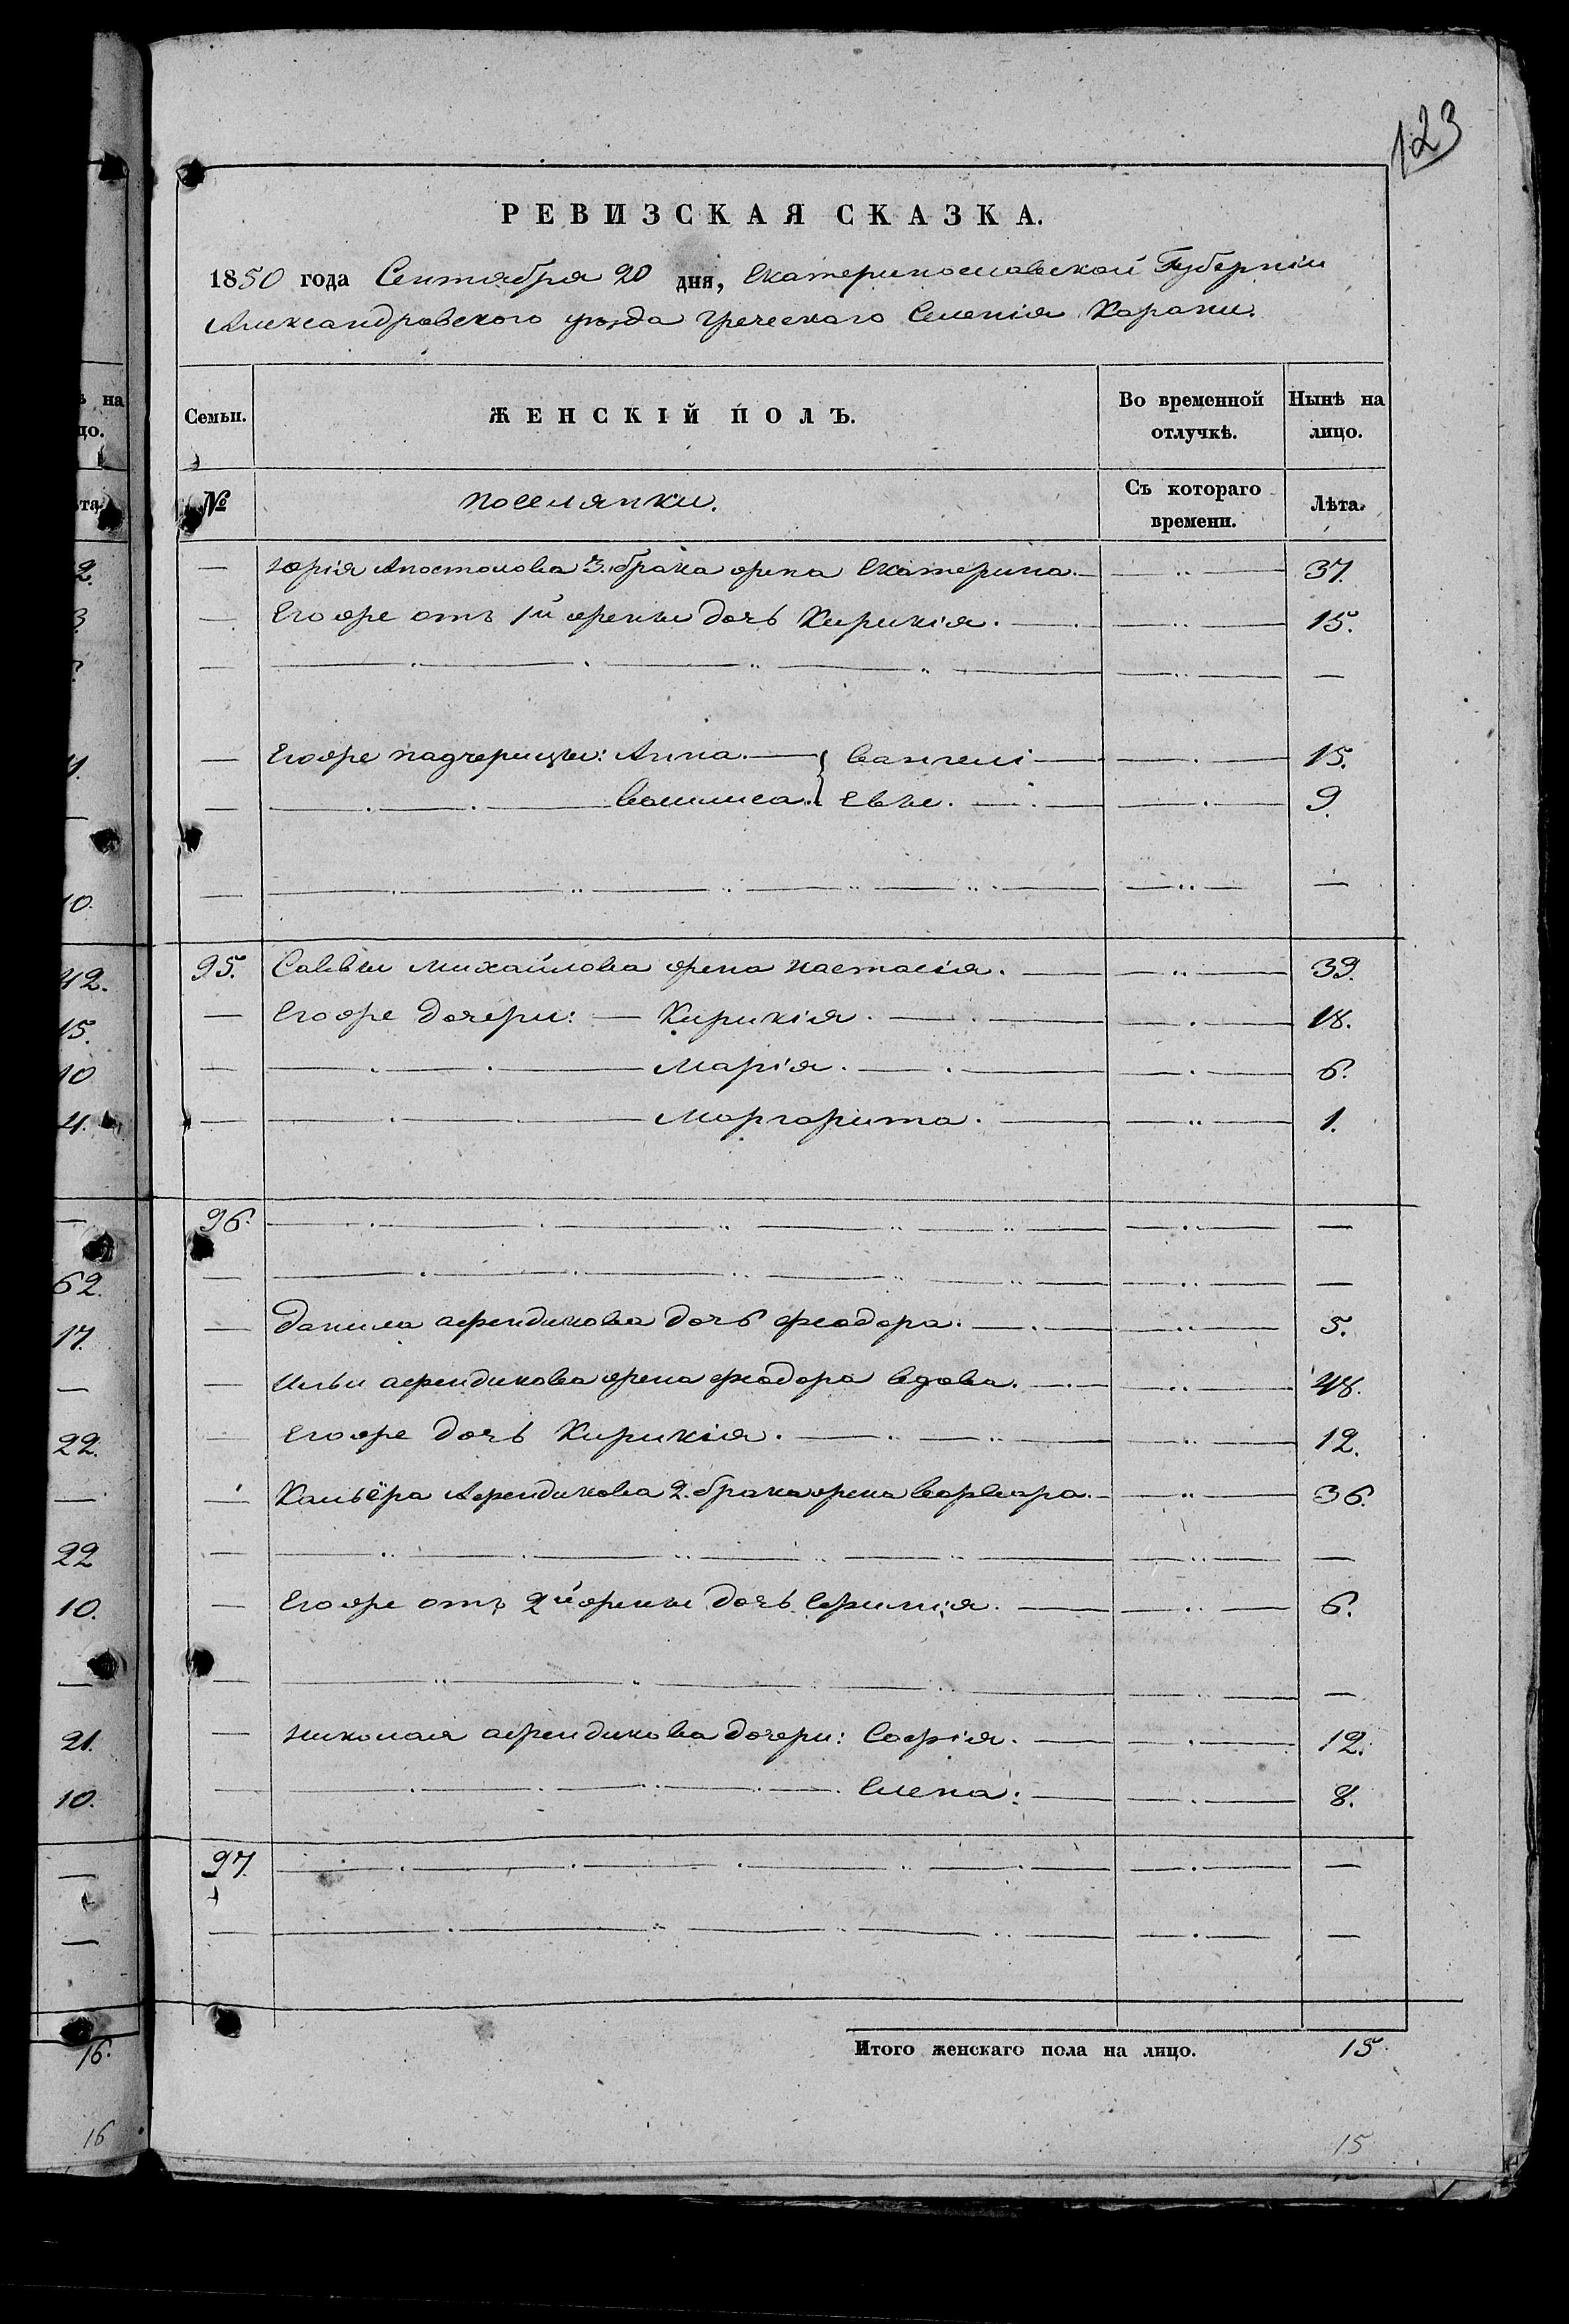 123
РЕВИЗСКАЯ СКАЗКА.
1850 года Сентября 20 дня, Екатеринославской Губернiи
Александровского уѣзда Греческаго Селенiя Карани.
Семьи. ЖЕНСКIЙ ПОЛЪ. Во временной отлучкѣ. Нынѣ на лицо.
№ поселянки. Съ котораго времени. Лѣта.
— Юрiя Апостолова 3. брака жена Екатерина. — 37.
— Его же отъ 1й жены дочь Кирикiя. — 15.
—
— Его же падчерицы: Анна. — } Вангелi — 15.
— Василиса. } Евы. — 9.
—
95. Саввы Михайлова жена Настасiя. — 39.
— Его же дочери: — Кирикiя. — 18.
— Марiя. — 6.
— Маргарита. — 1.
96. —
—
— Данила афендикова дочь феодора. — 5.
— Ильи афендикова жена феодора вдова. — 48.
— Его же дочь Кирикiя. — 12.
— Кальёра Афендикова 2. брака жена варвара. — 36.
—
— Его же отъ 2й жены дочь Ефимiя. — 6.
—
— Николая афендикова дочери: Софiя. — 12.
— Елена: — 8.
97. —
—
Итого женскаго пола на лицо. 15.
15
на
цо.
та.
2.
3.
10.
42.
15.
10
4.
62.
17.
22.
22
10.
21.
10.
16.
16